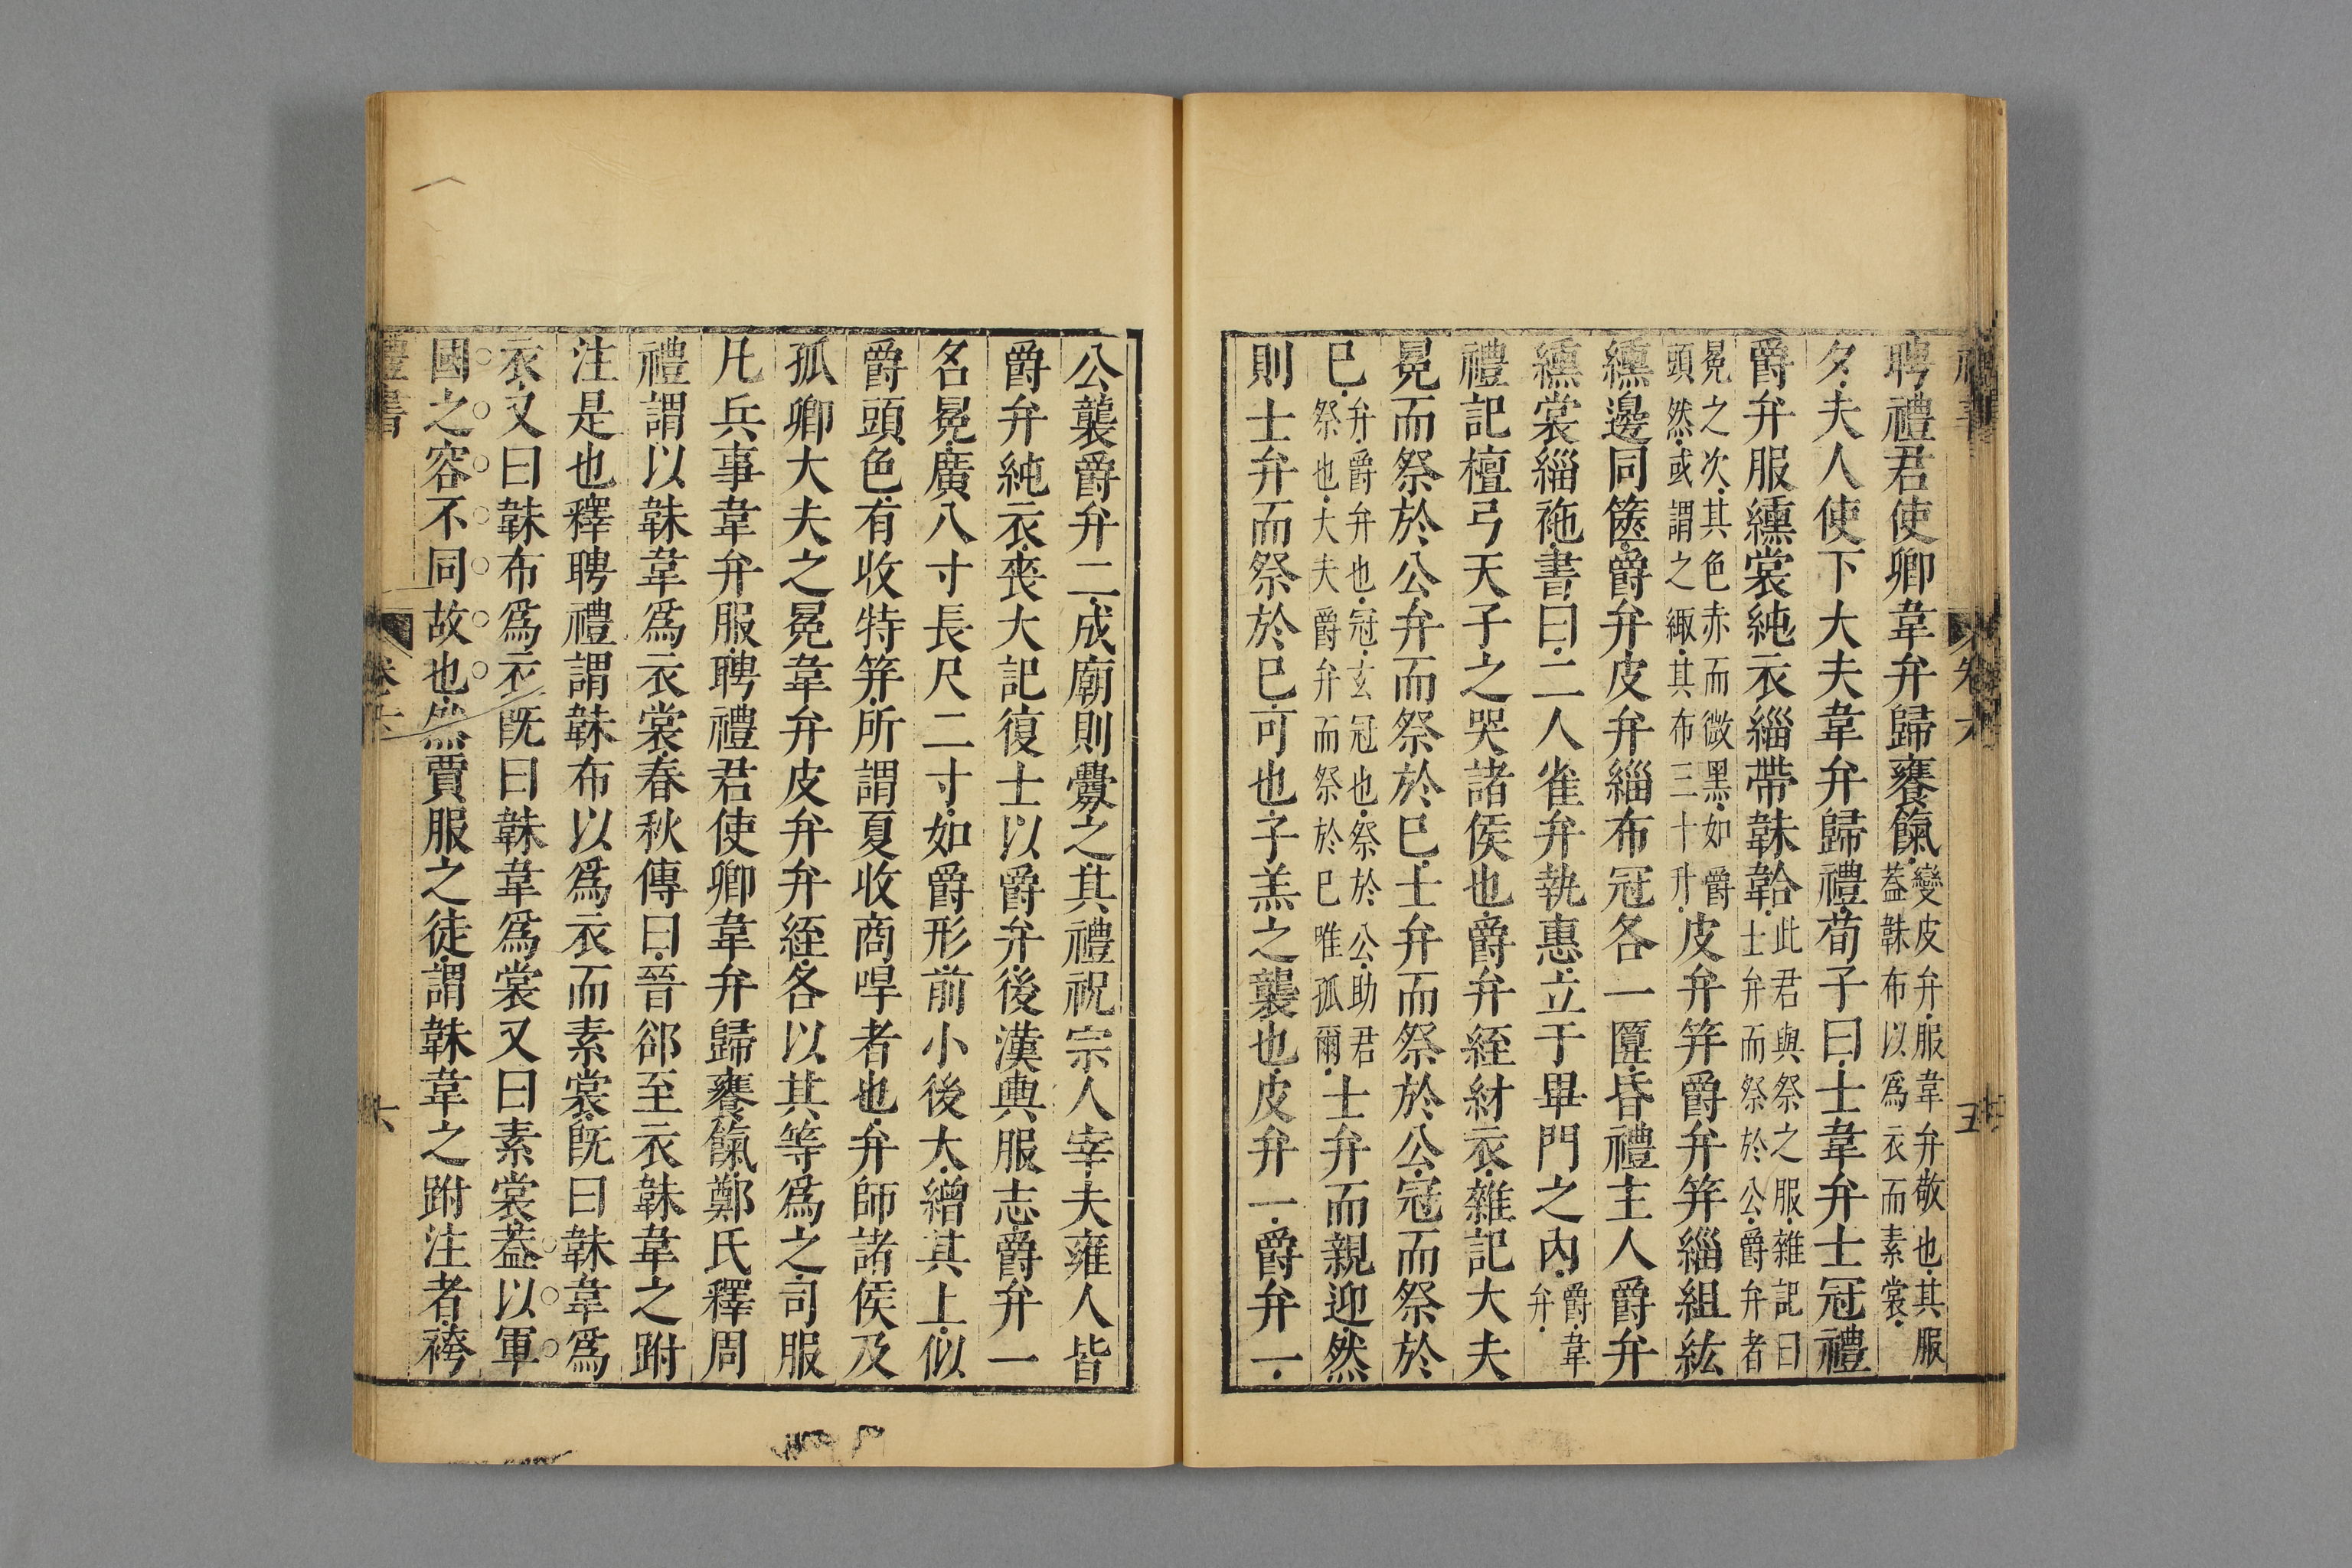 聘禮君使卿韋弁歸饔餼變皮弁服韋弁敬也其服蓋韎布以為衣而素裳
夕夫人使下大夫韋弁歸禮荀子曰士韋弁士冠禮
爵弁服纁裳純衣緇帶韎韐此君與祭之服雜記曰士弁而祭於公爵弁者
冕之次其色赤而微黑如爵頭然或謂之緅其布三十升皮弁笄爵弁笄緇組紘
纁邊同篋爵弁皮弁緇布冠各一匴昏禮主人爵弁
纁裳緇袘書曰二人雀弁執惠立于畢門之內爵韋弁
禮記檀弓天子之哭諸侯也爵弁絰紂衣雜記大夫
冕而祭於公弁而祭於巳士弁而祭於公冠而祭於
巳弁爵弁也冠玄冠也祭於公助君祭也大夫爵弁而祭於巳唯孤爾士弁而親迎然
則士弁而祭於巳可也子羔之襲也皮弁一爵弁一
公襲爵弁二成廟則釁之其禮祝宗人宰夫雍人皆
爵弁純衣喪大記復士以爵弁後漢輿服志爵弁一
名冕廣八寸長尺二寸如爵形前小後大繒其上似
爵頭色有收特笄所謂夏收商哻者也弁師諸侯及
孤卿大夫之冕韋弁皮弁弁絰各以其等爲之司服
凡兵事韋弁服聘禮君使卿韋弁歸饔餼鄭氏釋周
禮謂以韎韋爲衣裳春秋傳曰晉郤至衣韎韋之跗
注是也釋聘禮謂韎布以爲衣而素裳旣曰韎韋爲
衣又曰韎布爲衣旣曰韎韋爲裳又曰素裳蓋以軍
國之容不同故也然賈服之徒謂韎韋之跗注者袴
禮書
卷六
五
六